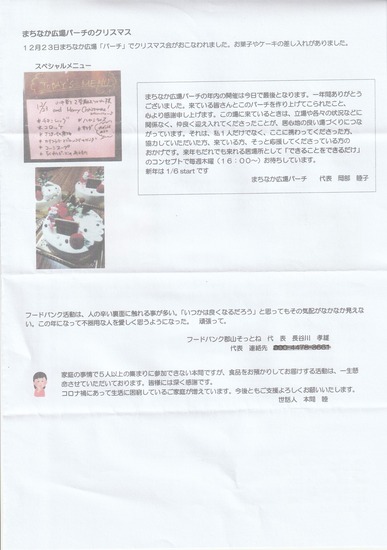 まちなか広場パーチのクリスマス
12月23日まちなか広場「パーチ」でクリスマス会がおこなわれました。お菓子やケーキの差し入れがありました。
スペシャルメニュー
MENU
12/23
and Merry Christmas!
まちなか広場パーチの年内の開催は今日で最後となります。一年間ありがとう
ございました。来ている皆さんとこのパーチを作り上げてこられたこと、
心より感謝申し上げます。この場に来ているときは、立場や各々の状況などに
関係なく、仲良く迎え入れてくださったことが、居心地の良い場づくりにつな
がっています。それは、私1人だけでなく、ここに携わってくださった方、
協力していただいた方、来ている方、そっと応援してくださっている方の
おかげです。来年もだれでも来れる居場所として「できることをできるだけ」
のコンセプトで毎週木曜(16:00～)お待ちしています。
新年は1/6 start です
まちなか広場パーチ 代表 岡部 睦子
フードバンク活動は、人の辛い裏面に触れる事が多い。「いつかは良くなるだろう」と思ってもその気配がなかなか見えな
い。この年になって不器用な人を愛しく思うようになった。 頑張って。
フードバンク郡山そっとね 代 表 長谷川 孝雄
代表 連絡先
家庭の事情で5人以上の集まりに参加できない本岡ですが、食品をお預かりしてお届けする活動は、一生懸
命させていただいております。皆様には深く感謝です。
コロナ禍にあって生活に困窮しているご家庭が増えています。今後ともご支援よろしくお願いいたします。
世話人 本岡 睦